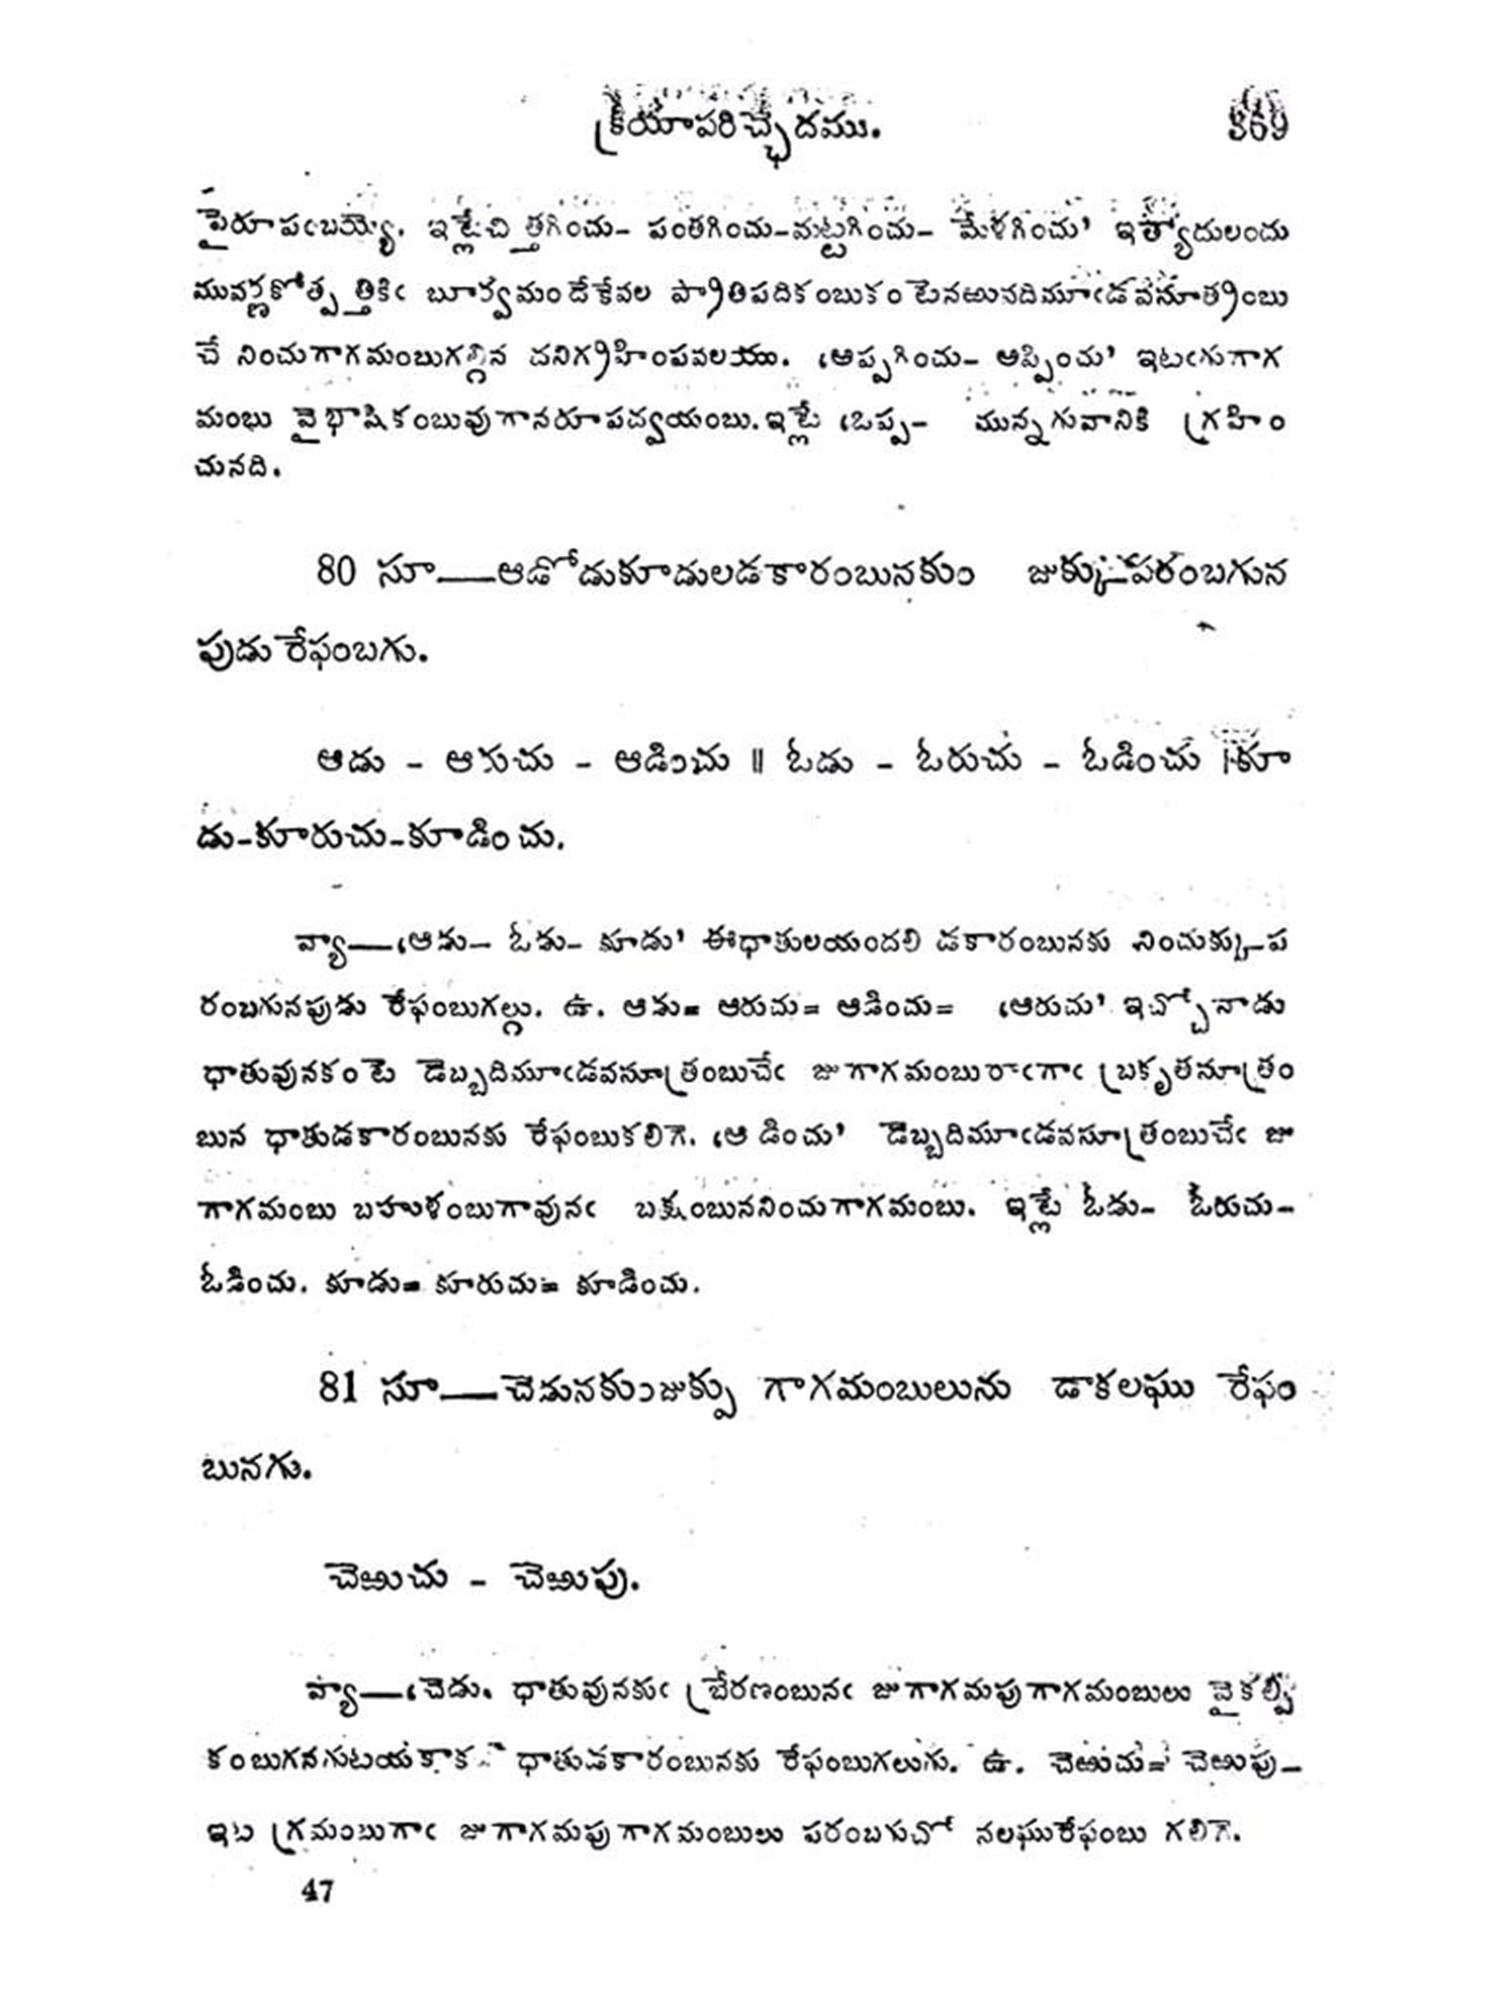 క్రియాపరిచ్ఛేదము. 369
పైరూపఁబయ్యె. ఇట్లేచిత్తగించు- పంతగించు-మట్టగించు- మేళగించు' ఇత్యాదులందు
మువర్ణకోత్పత్తికిఁ బూర్వమందేకేవల ప్రాతిపదికంబుకంటెనఱునదిమూఁడవసూత్రంబు
చే నించుగాగమంబుగల్గిన దనిగ్రహింపవలయు. ‘అప్పగించు- అప్పించు' ఇటఁగుగాగ
మంబు వైభాషికంబువుగానరూపద్వయంబు. ఇట్లే ‘ఒప్ప- మున్నగువానికి గ్రహిం
చునది.
80 సూ—ఆడోడుకూడులడకారంబునకుం జుక్కుపరంబగున
పుడు రేఫంబగు.
ఆడు - ఆరుచు - ఆడించు ॥ ఓడు - ఓరుచు - ఓడించు ।కూ
డు-కూరుచు-కూడించు.
వ్యా—‘ఆడు- ఓడు- కూడు' ఈధాతులయందలి డకారంబునకు నించుక్కు-ప
రంబగునపుడు రేఫంబుగల్గు. ఉ. ఆడు= ఆరుచు= ఆడించు= ‘ఆరుచు' ఇచ్చోనాడు
ధాతువునకంటె డెబ్బదిమూఁడవసూత్రంబుచేఁ జుగాగమంబురాఁగాఁ బ్రకృతసూత్రం
బున ధాతుడకారంబునకు రేఫంబుకలిగె. ‘ఆడించు' డెబ్బదిమూఁడవసూత్రంబుచేఁ జు
గాగమంబు బహుళంబుగావునఁ బక్షంబుననించుగాగమంబు. ఇట్లే ఓడు- ఓరుచు-
ఓడించు. కూడు= కూరుచు= కూడించు.
81 సూ—చెడునకుంజుక్పు గాగమంబులును డాకలఘు రేఫం
బునగు.
చెఱుచు - చెఱుపు.
వ్యా—‘చెడు. ధాతువునకుఁ బ్రేరణంబునఁ జుగాగమపుగాగమంబులు వైకల్పి
కంబుగనగుటయకాక ధాతుడకారంబునకు రేఫంబుగలుగు. ఉ. చెఱుచు= చెఱుపు-
ఇట గ్రమంబుగాఁ జుగాగమపుగాగమంబులు పరంబగుచో నలఘురేఫంబు గలిగె.
47